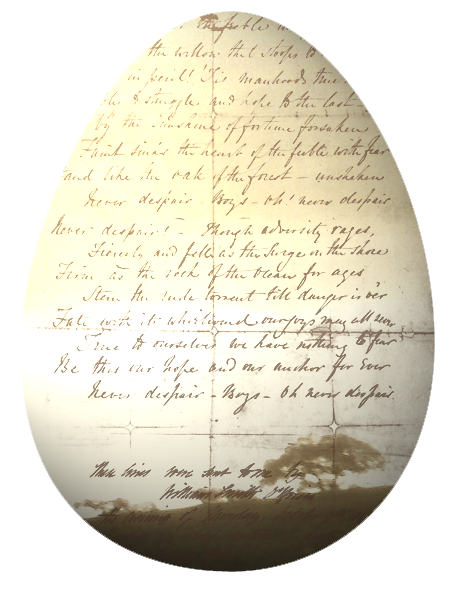 the feeble
the willow that stoops to
in peril! Tis manhoods true
& struggle and hope to the last
by the sunshine of fortune forsaken
Faint sinks the heart of the feeble with fear
Stand like the oak of the forest - unshaken
Never despair - Boys - Oh! never despair
Never despair! - Though adversity rages,
Fiercely and fell as the Surge on the shore
Firm as the rock of the ocean for ages
Stem the rude torrent till danger is o'er
Fate with its whirlwind our joys may all sever
True to ourselves we have nothing to fear
Be this our hope and our anchor for Ever
Never despair - Boys - Oh never despair.
These lines were sent to me by
William Smith O'Brien